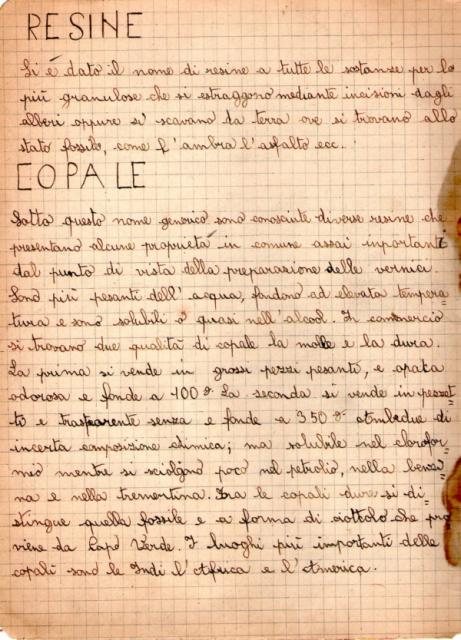 RESINE
Si é dato il nome di resine a tutte le sostanze per lo
più granulose che si estraggono mediante incisioni dagli
alberi oppure si scavano da terra ove si trovano allo
stato fossile, come l'ambra l'asfalto ecc.
COPALE
Sotto questo nome generico sono conosciute diverse resine che
presentano alcune proprietà in comune assai inportanti
dal punto di vista della preparazione delle vernici.
Sono più pesanti dell'acqua, fondono ad elevata tempera=
tura e sono solubili o quasi nell'alcool. In commercio
si trovano due qualità di copale la molle e la dura.
La prima si vende in grossi pezzi pesanti, e opaca
odorosa e fonde a 100°. La seconda si vende in pezzet=
ti e trasparente senza e fonde a 350° ambedue di
incerta composizione chimica; ma solubile nel clorofor=
mio mentre si sciolgono poco nel petrolio, nella benzi=
na e nella trementina. Fra le copali dure si di=
stingue quella fossile e a forma di ciottolo che pro
viene da Capo Verde. I luoghi più importanti delle
copali sono le Indi l'Africa e l'America.